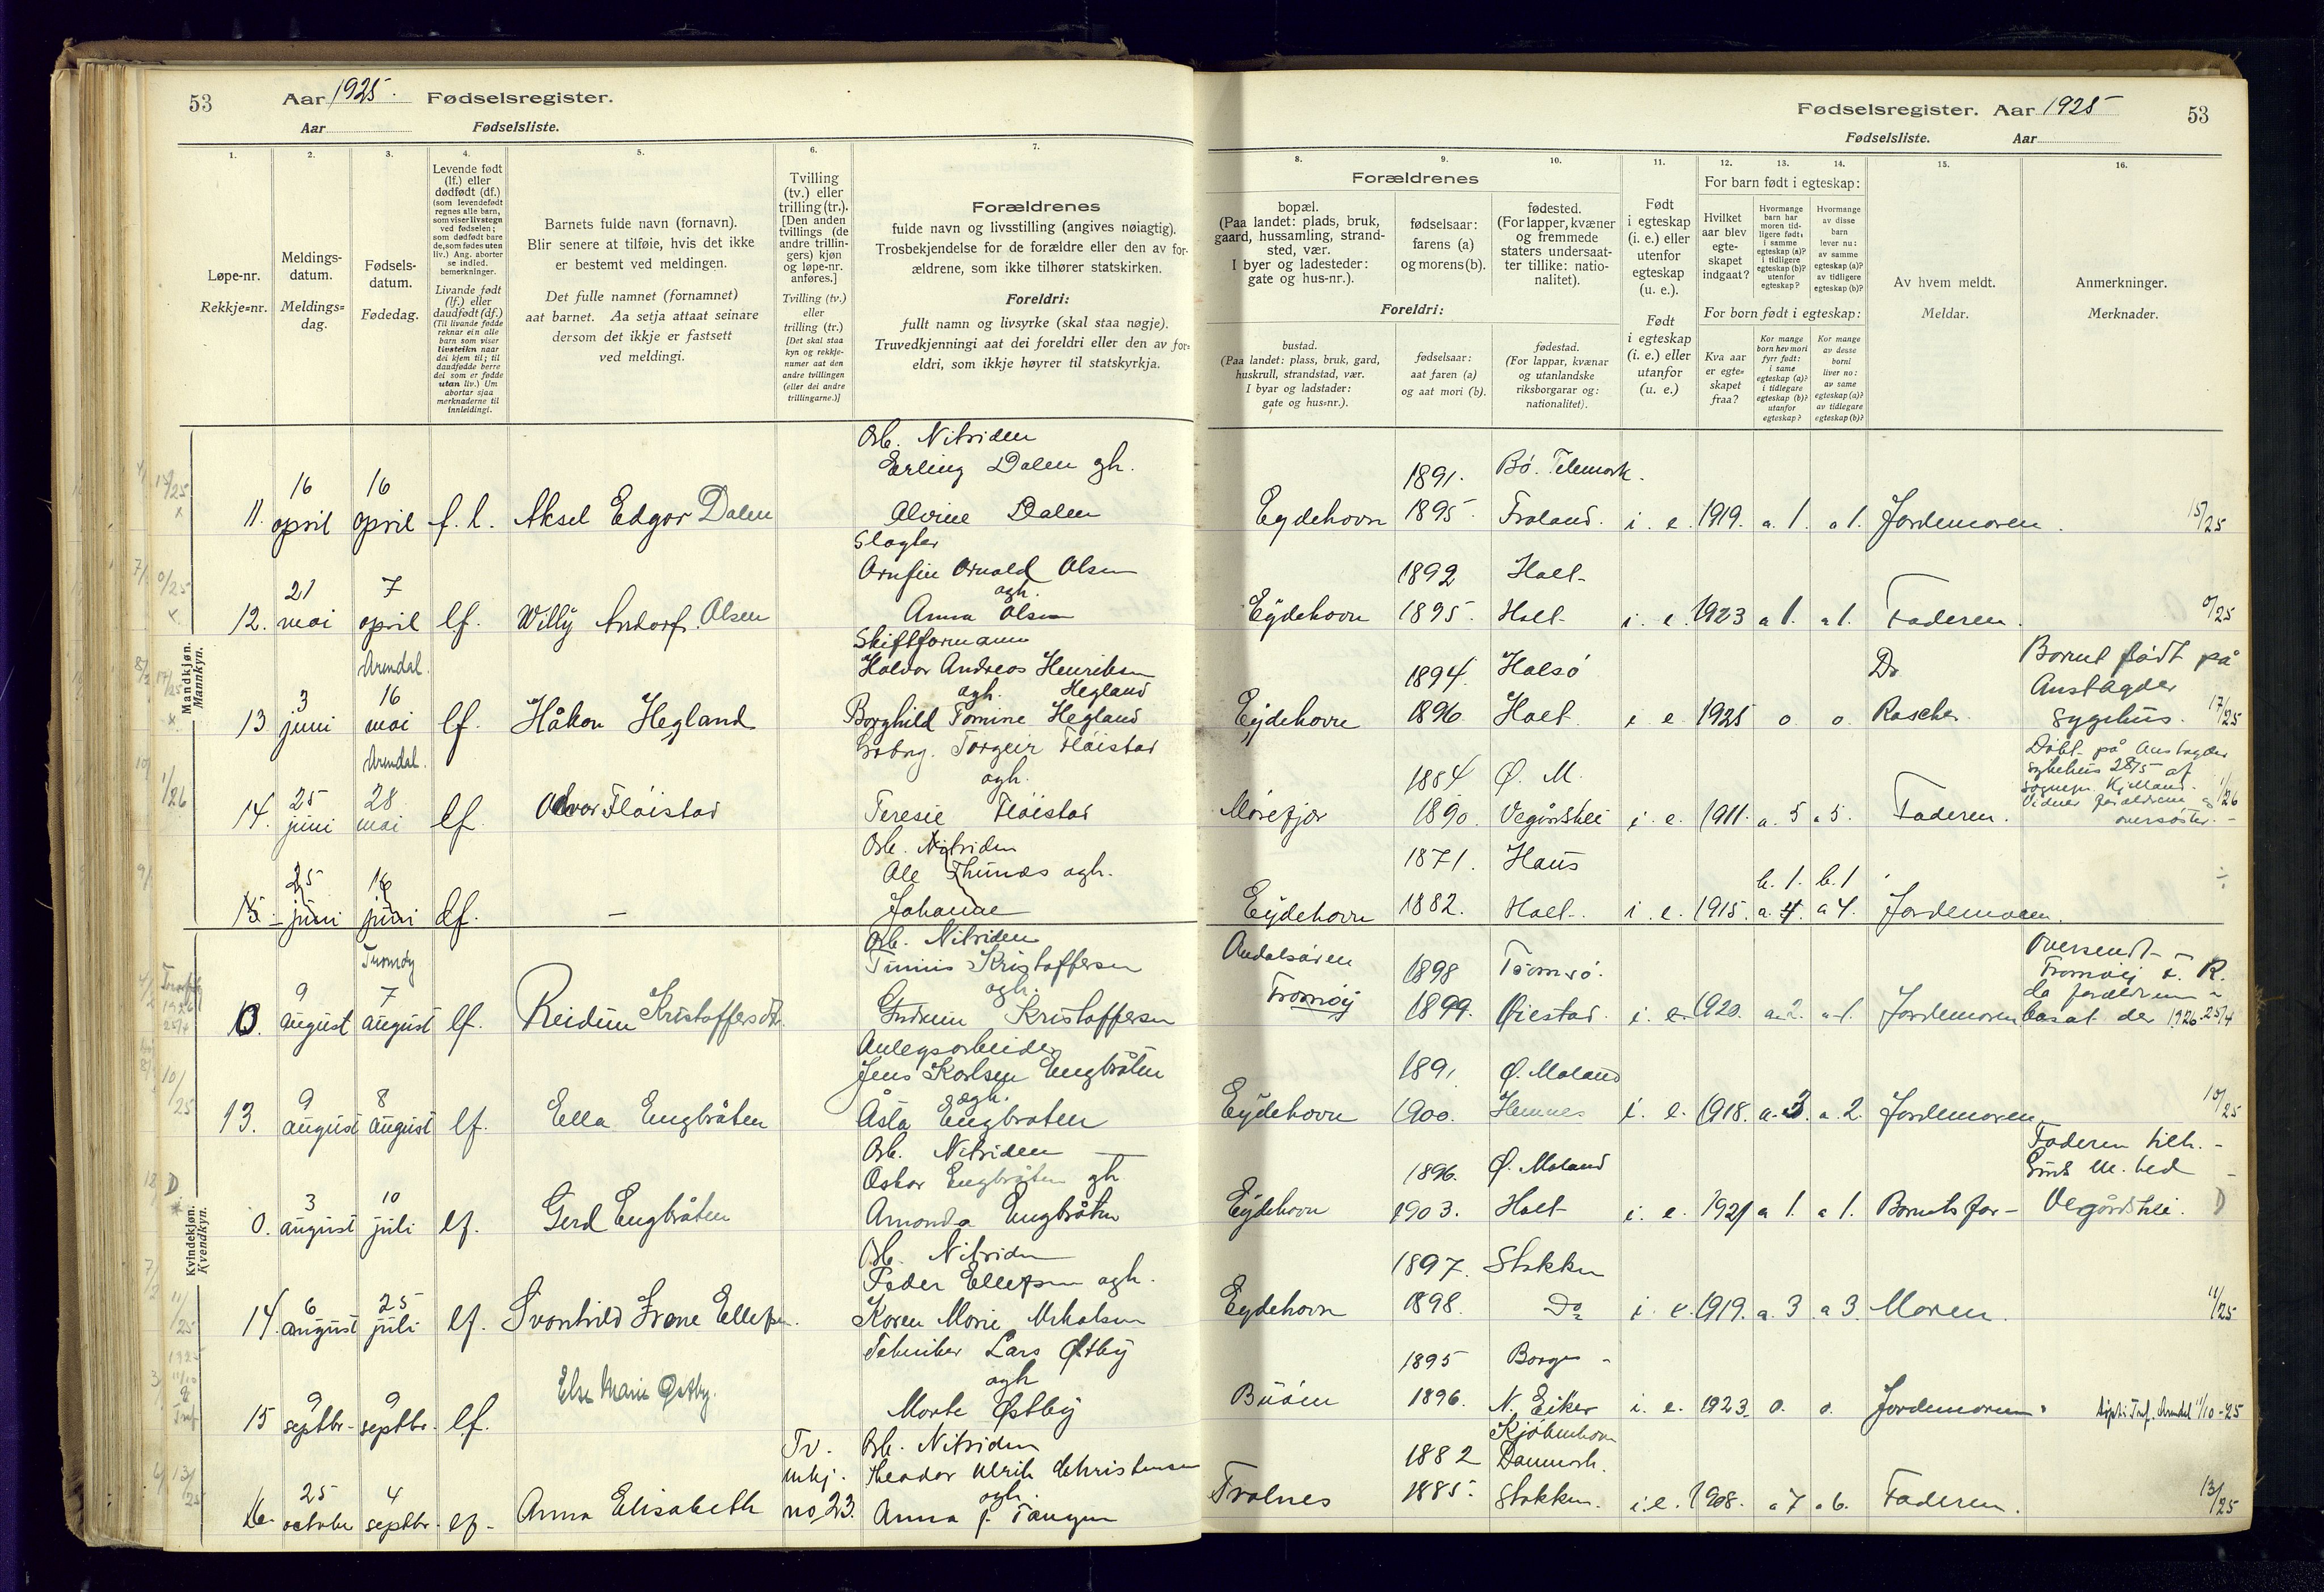 53 Aar 1925. Fødselsregister.
Aar Fødselsliste.
1. 2. 3. 4. 5. 6. 7.
Løpe-nr.
Rekkje=nr.
Meldings-
datum.
Meldings=
dag.
Fødsels-
datum.
Fødedag.
Levende født
(lf.) eller
dødfødt (df.)
(som levendefødt
regnes alle barn,
som viser livstegn
ved fødselen;
som dødfødt bare
de, som fødes uten
liv.) Ang. aborter
se indled.
bemerkninger.
Livande født
(lf.) eller
daudfødt (df.)
(Til livande fødde
reknar ein alle
barn som viser
livsteikn naar
dei kjem til; til
daudfødde berre
dei som er fødde
utan liv.) Um
abortar sjaa
merknaderne til
innleidingi.
Barnets fulde navn (fornavn).
Blir senere at tilføie, hvis det ikke
er bestemt ved meldingen.
Det fulle namnet (fornamnet)
aat barnet. Aa setja attaat seinare
dersom det ikkje er fastsett
ved meldingi.
Tvilling
(tv.) eller
trilling (tr.).
[Den anden
tvillings (de
andre trillin-
gers) kjøn
og løpe-nr.
anføres.]
Tvilling (tv.)
eller
trilling (tr.)
[Det skal staa
kyn og rekkje-
numer aat den
andre tvillingen
(eller dei andre
trillingarne.)]
Forældrenes
fulde navn og livsstilling (angives nøiagtig).
Trosbekjendelse for de forældre eller den av for-
ældrene, som ikke tilhører statskirken.
Foreldri:
fullt namn og livsyrke (skal staa nøgje).
Truvedkjenningi aat dei foreldri eller den av for=
eldri, som ikkje høyrer til statskyrkja.
Mandkjøn.
Mannkyn.
Arb. Nitriden
Erling Dalen gh.
16 16
11. april april f. l. Aksel Edgar Dalen Alvine Dalen
Slagter
Arnfin Arnold Olsen
21 7 agh.
12. mai april lf. Willy Andorf. Olsen Anna Olsen
Arendal. Skiftformann
Halvor Andreas Henriksen
3 16 agh. Hegland
13 juni mai lf. Håkon Hegland Borghild Tomine Hegland
Arendal. Torgeir Fløistad
agh.
25 28
14. juni mai lf. Fløistad Teresie Fløistad
Arb. Nitriden
25 16 Ole agh.
15. juni juni df. — Johanne
Kvindekjøn.
Kvendkyn.
Tromøy Arb. Nitriden
Kristoffersen
9 7 agh.
10. august august lf. Reidun Kristoffersen Gudrun Kristoffersen
Anlegsarbeider
Jens Karlsen Engbråten
9 8 agh.
13. august august lf. Ella Engbråten Åsta Engbråten
Arb. Nitriden
Oskar Engbråten gh
3 10
0. august juli lf. Gerd Engbråten Amanda Engbråten
Arb. Nitriden
Peder Ellefsen agh.
6 25
14. august juli lf. Svanhild Irene Ellefsen. Karen Marie
Tekniker Lars Østby
9 9 agh
15 septbr. septbr. lf. Else Marie Østby. Marte Østby
Tv. Arb. Nitriden
mkj. Theodor Ulrik Christensen
25 4 agh.
16. octobr septbr. lf. Anna Elisabeth no 23. Anna J. Tangen
Fødselsregister. Aar 1925 53
Fødselsliste. Aar
8. 9. 10. 11. 12. 13. 14. 15. 16.
Forældrenes
bopæl.
(Paa landet: plads, bruk,
gaard, hussamling, strand-
sted, vær.
I byer og ladesteder:
gate og hus-nr.).
fødselsaar:
farens (a)
og morens (b).
fødested.
(For lapper, kvæner
og fremmede
staters undersaat-
ter tillike: natio-
nalitet).
Foreldri:
bustad.
(Paa landet: plass, bruk, gard,
huskrull, strandstad, vær.
I byar og ladstader:
gate og hus=nr.).
fødselsaar:
aat faren (a)
og aat mori (b).
fødestad.
(For lappar, kvænar
og utanlandske
riksborgarar og:
nationalitet).
Født
i egteskap
(i. e.) eller
utenfor
egteskap
(u. e.).
Født
i egteskap
(i. e.) eller
utanfor
(u. e.)
For barn født i egteskap:
Hvilket
aar blev
egte-
skapet
indgaat?
Hvormange
barn har
moren tid-
ligere født:
i samme
egteskap (a)?
i tidligere
egteskap (b)?
utenfor
egteskap?
Hvormange
av disse
barn
lever nu:
av samme
egteskap (a)?
av tidligere
egteskap (b)?
For born født i egteskap:
Kva aar
er egte=
skapet
fraa?
Kor mange
born hev mori
fyrr født:
i same
egteskap (a)?
i tidlegare
egteskap (b)?
utanfor
egteskap?
Kor mange
av desse
borni
liver no:
av same
egteskap (a)?
av tidlegare
egteskap (b)?
Av hvem meldt.
Meldar.
Anmerkninger.
Merknader.
1891. Bø. Telemark.
Eydehavn 1895. Froland. i. e. 1919. a. 1. a 1. Jordemoren. 15/25
1892 Holt-
Eydehavn 1895. Holt- i. e. 1923 a 1. a 1. Faderen. 0/25
1894. Halsö Do Barnet født på
Austagder
Eydehavn 1896. Holt. i e. 1925 o. o. sygehus. 17/25
Døbt på Austagder
sykehus 28/5 af
1884 Ø. M.
Vidner forældrene og 1/26
Morefjær 1890. Vegårdshei i. e. 1911. a. 5 a 5. Faderen. oversøster.
1871. Haus
b. 1. b. 1
Eydehavn 1882. Holt-. i. e. 1915. a. 4. a 4. Jordemoren.
Oversendt-
1898 Tromsø. Tromøy
Tromøy 1899. Øiestad. i. e. 1920. a. 2. a 1. Jordemoren bosat der 1926. 25/4
1891 Ø. Moland
Eydehavn 1900. Hemnes i. e. 1918. a. 3. a. 2. Jordemoren. 10/25
Faderen tilh.
1896. Ø. Moland
Eydehavn 1903. Holt- i. e. 1921 a 1. a 1. Barnets far- Vegårdshei. D
1897. Stokken
Eydehavn 1898. Do i. e. 1919. a. 3 a 3. Moren. 11/25
1895 Borge-
Buøen 1896. N. Eiker i. e. 1923. o. o. Jordemoren. Arendal 11/10-25
Kjøbenhavn
1882 Danmark.
Tvalnes 1885. Stokken. i. e. 1908. a 7 a 6. Faderen. 13/25